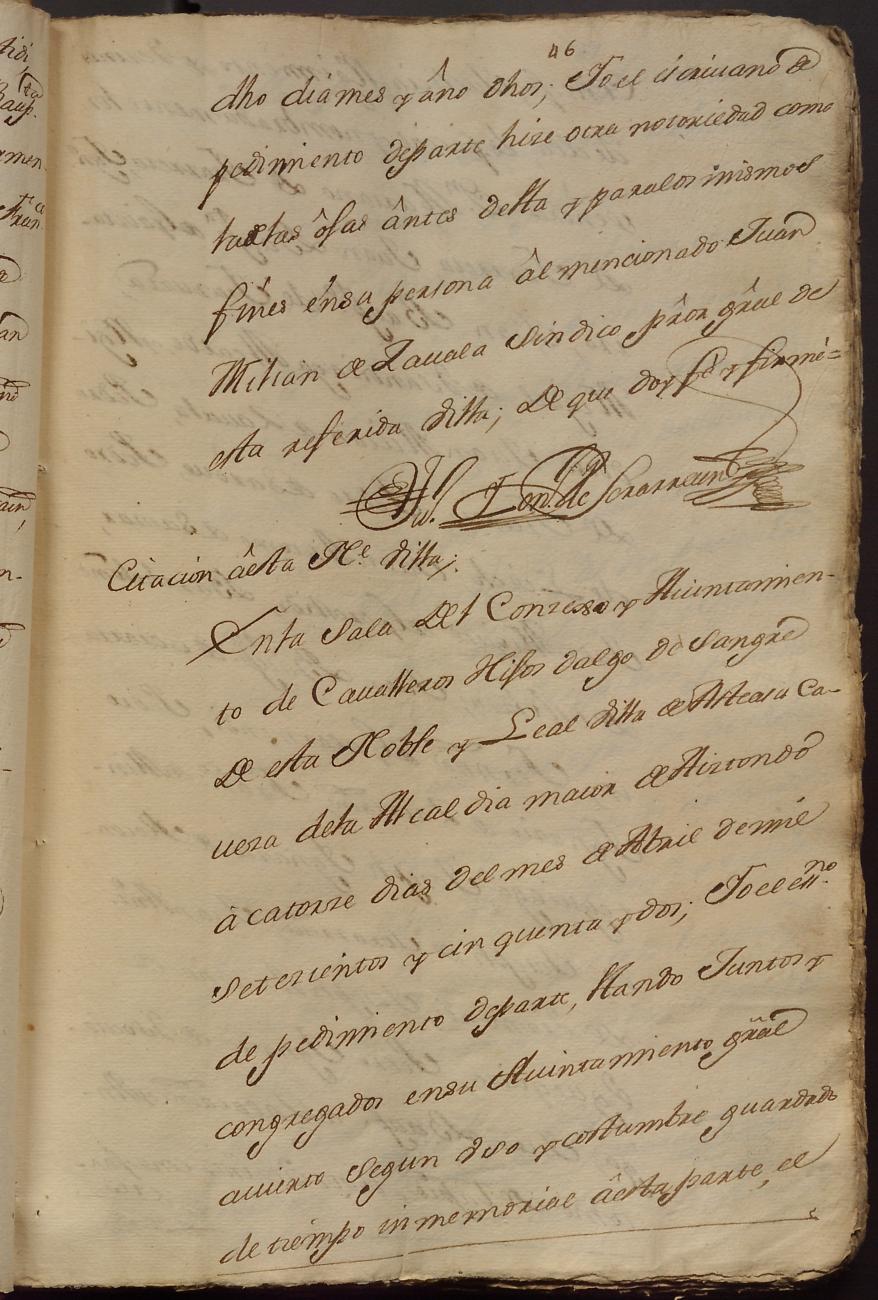 46
dho dia mes y año dhos; Yo el escriuano de
pedimiento de parte hize otra notoriedad como
las otras ântes desta y para los mismos
fines en su persona âl mencionado Juan
Milian de Zauala Sindico prôr grâl de
esta referida villa; De que doy fe y firmé=
de
Citacion âesta Ne. villa;
En la Sala Del Conzexo y Aiuntamien-
to de Caualleros Hijos dalgo de Sangre
De esta Noble y Leal villa de Asteasu Ca-
ueza de la Alcaldia maior de Aiztondo
à catorze dias del mes de Abril de mil
setecientos y cinquenta y dos; Yo el essno.
de pedimiento de parte, stando Juntos y
congregados en su Aiuntamiento grâl
auierto segun vso y costumbre guardado
de tiempo inmemorial âesta parte, el